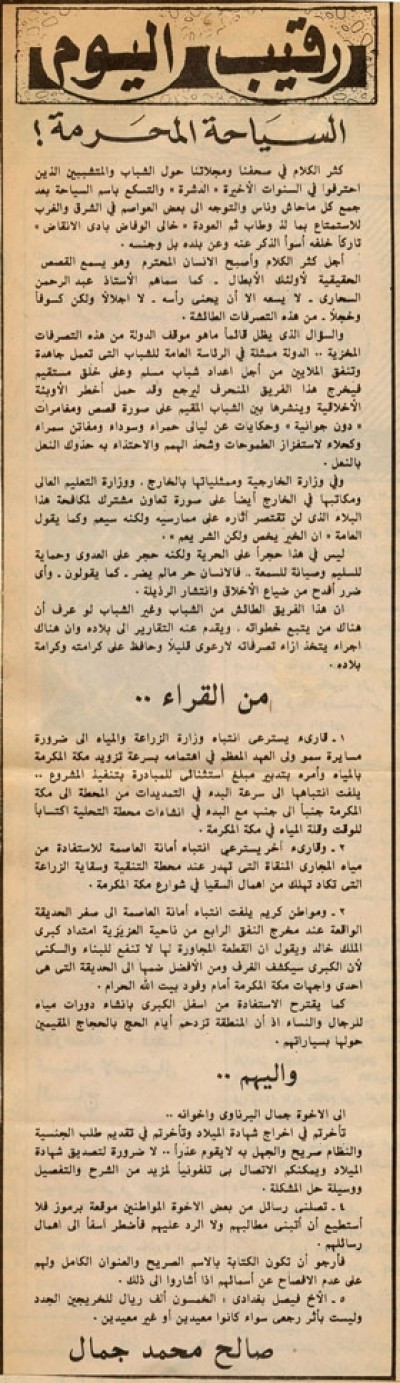 رقيب اليوم
السياحة المحرمة !
كثر الكلام في صحفنا ومجلاتنا حول الشباب والمتشببين الذين
احترفوا في السنوات الأخيرة « الدشرة » والتسكع باسم السياحة بعد
جمع كل ماحاش وناس والتوجه الى بعض العواصم في الشرق والغرب
للاستمتاع بما لذ وطاب ثم العودة « خالى الوفاض بادى الانقاض »
تاركاً خلفه أسوأ الذكر عنه وعن بلده بل وجنسه .
أجل كثر الكلام وأصبح الانسان المحترم وهو يسمع القصص
الحقيقية لأولئك الأبطال ـ كما سماهم الأستاذ عبد الرحمن
السحارى ـ لا يسعه الا أن يحنى رأسه ـ لا اجلالاً ولكن كسوفاً
وخجلاً ـ من هذه التصرفات الطائشة .
والسؤال الذى يظل قائماً ماهو موقف الدولة من هذه التصرفات
المخزية .. الدولة ممثلة في الرئاسة العامة للشباب التى تعمل جاهدة
وتنفق الملايين من أجل اعداد شباب مسلم وعلى خلق مستقيم
فيخرج هذا الفريق المنحرف ليرجع وقد حمل أخطر الأوبئة
الأخلاقية وينشرها بين الشباب المقيم على صورة قصص ومغامرات
« دون جوانية » وحكايات عن ليالى حمراء وسوداء ومفاتن سمراء
وكحلاء لاستفزاز الطموحات وشحذ الهمم والاحتذاء به حذوك النعل
بالنعل .
وفي وزارة الخارجية وممثلياتها بالخارج ، ووزارة التعليم العالى
ومكاتبها في الخارج أيضاً على صورة تعاون مشترك لمكافحة هذا
البلاء الذى لن تقتصر آثاره على ممارسيه ولكنه سيعم وكما يقول
العامة « ان الخير يخص ولكن الشر يعم » .
ليس في هذا حجراً على الحرية ولكنه حجر على العدوى وحماية
للسليم وصيانة للسمعة .. فالانسان حر مالم يضر ـ كما يقولون ـ وأى
ضرر أفدح من ضياع الأخلاق وانتشار الرذيلة .
ان هذا الفريق الطائش من الشباب وغير الشباب لو عرف أن
هناك من يتبع خطواته ، ويقدم عنه التقارير الى بلاده وان هناك
اجراء يتخذ ازاء تصرفاته لارعوى قليلاً وحافظ على كرامته وكرامة
بلاده .
من القراء ..
١ ـ قارىء يسترعى انتباه وزارة الزراعة والمياه الى ضرورة
مسايرة سمو ولى العهد المعظم في اهتمامه بسرعة تزويد مكة المكرمة
بالمياه وأمره بتدبير مبلغ استثنائى للمبادرة بتنفيذ المشروع ..
يلفت انتباهها الى سرعة البدء في التمديدات من المحطة الى مكة
المكرمة جنباً الى جنب مع البدء في انشاءات محطة التحلية اكتساباً
للوقت وقلة المياه في مكة المكرمة .
٢ ـ وقارىء آخر يسترعي انتباه أمانة العاصمة للاستفادة من
مياه المجارى المنقاة التى تهدر عند محطة التنقية وسقاية الزراعة
التى تكاد تهلك من اهمال السقيا في شوارع مكة المكرمة .
٣ ـ ومواطن كريم يلفت انتباه أمانة العاصمة الى صفر الحديقة
الواقعة عند مخرج النفق الرابع من ناحية العزيزية امتداد كبرى
الملك خالد ويقول ان القطعة المجاورة لها لا تنفع للبناء والسكنى
لأن الكبرى سيكشف الغرف ومن الأفضل ضمها الى الحديقة التى هى
احدى واجهات مكة المكرمة أمام وفود بيت الله الحرام .
كما يقترح الاستفادة من اسفل الكبرى بانشاء دورات مياه
للرجال والنساء اذ أن المنطقة تزدحم أيام الحج بالحجاج المقيمين
حولها بسياراتهم .
واليهم ..
الى الاخوة جمال البرناوى واخوانه ..
تأخرتم في اخراج شهادة الميلاد وتأخرتم في تقديم طلب الجنسية
والنظام صريح والجهل به لايقوم عذراً .. لا ضرورة لتصديق شهادة
الميلاد ويمكنكم الاتصال بى تلفونياً لمزيد من الشرح والتفصيل
ووسيلة حل المشكلة .
٤ ـ تصلنى رسائل من بعض الاخوة المواطنين موقعة برموز فلا
أستطيع أن أتبنى مطالبهم ولا الرد عليهم فأضطر آسفاً الى اهمال
رسائلهم .
فأرجو أن تكون الكتابة بالاسم الصريح والعنوان الكامل ولهم
على عدم الافصاح عن أسمائهم اذا أشاروا الى ذلك .
٥ ـ الأخ فيصل بغدادى ، الخمسون ألف ريال للخريجين الجدد
وليست بأثر رجعى سواء كانوا معيدين أو غير معيدين .
صالح محمد جمال